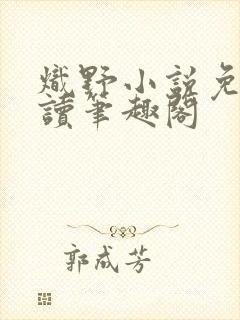 熾野小説免
讀筆趣閣
郭成芳